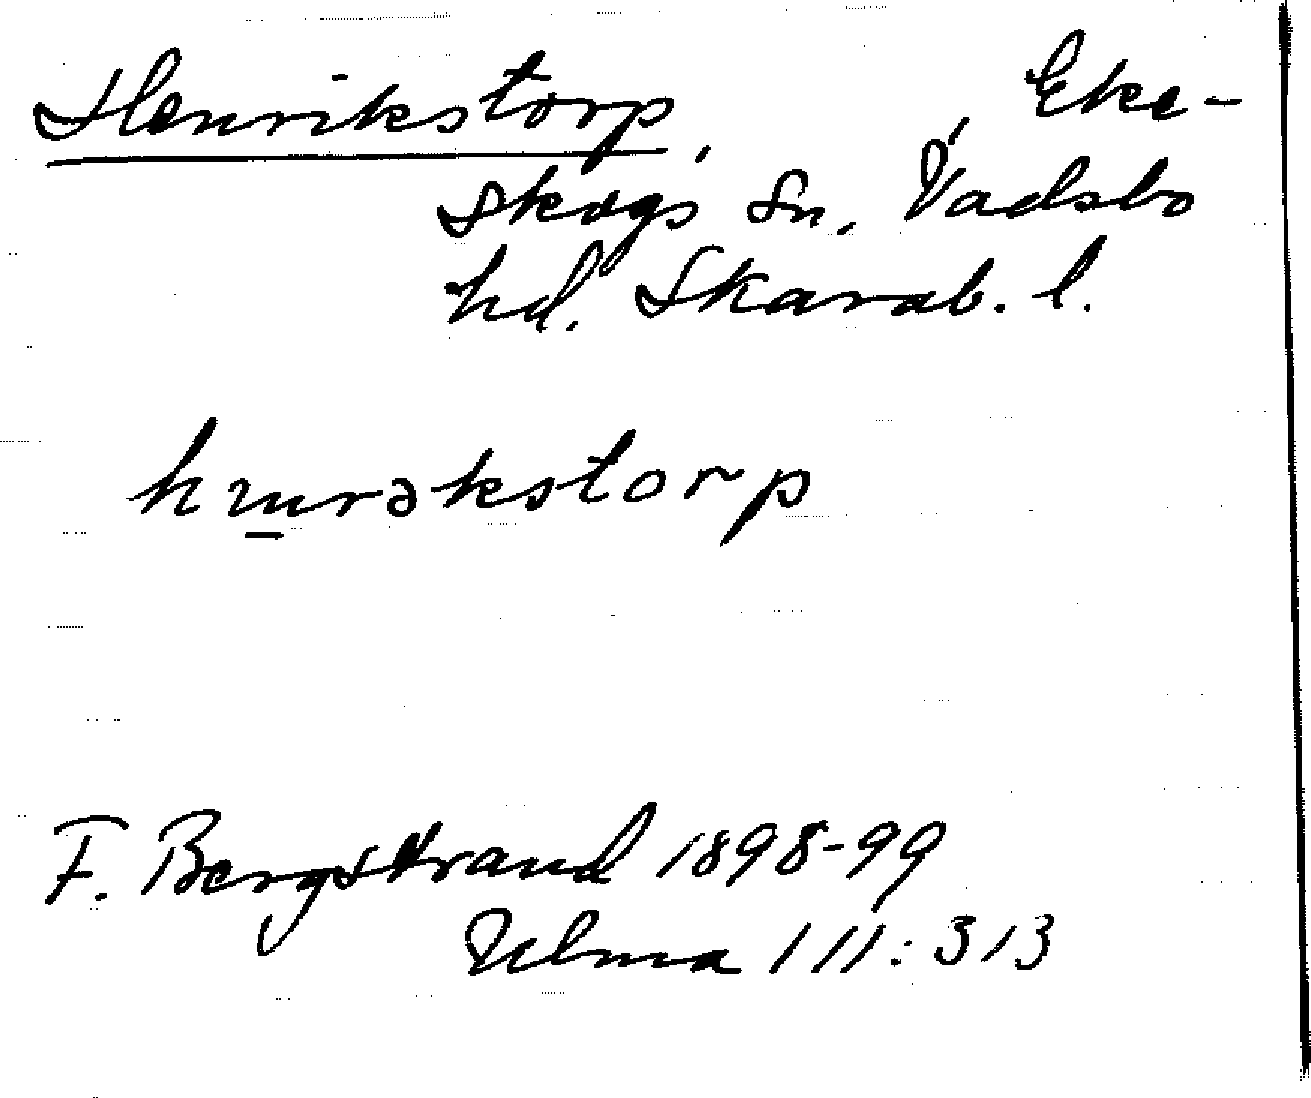 Henrikstorp, Eke-
skogs sn, Vadsbo
hd. Skarab. l.
F. Bergstrand 1898-99
Ulma 111:313